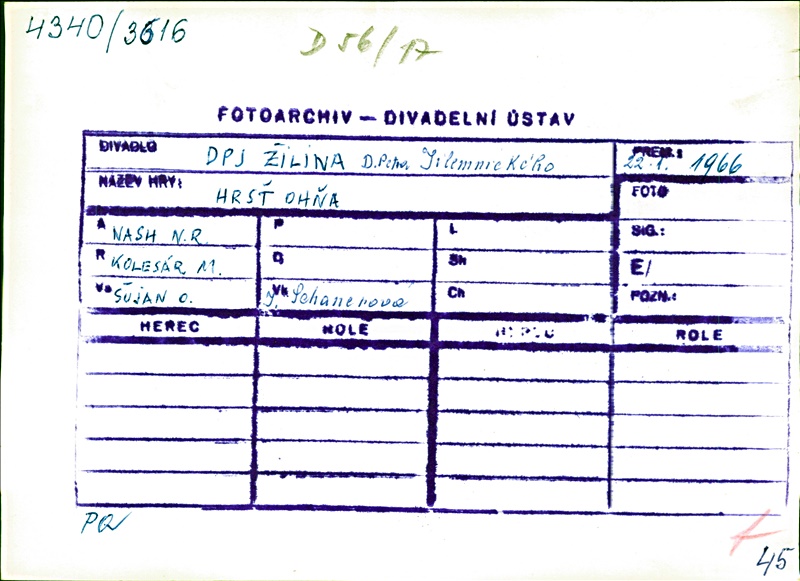 4340/3616
D 56/17
FOTOARCHIV — DIVADELNÍ ÚSTAV
DIVADLO DPJ ŽILINA D. Petra Jilemnického
PREM.: 22.1. 1966
NÁZEV HRY: HRSŤ OHŇA
FOTO
A NASH N.R. P L SIG.:
R KOLESÁR M. Sh E/
ŠUJAN O. Vk J. Schanerová Ch POZN.:
HEREC ROLE HEREC ROLE
PQ
45